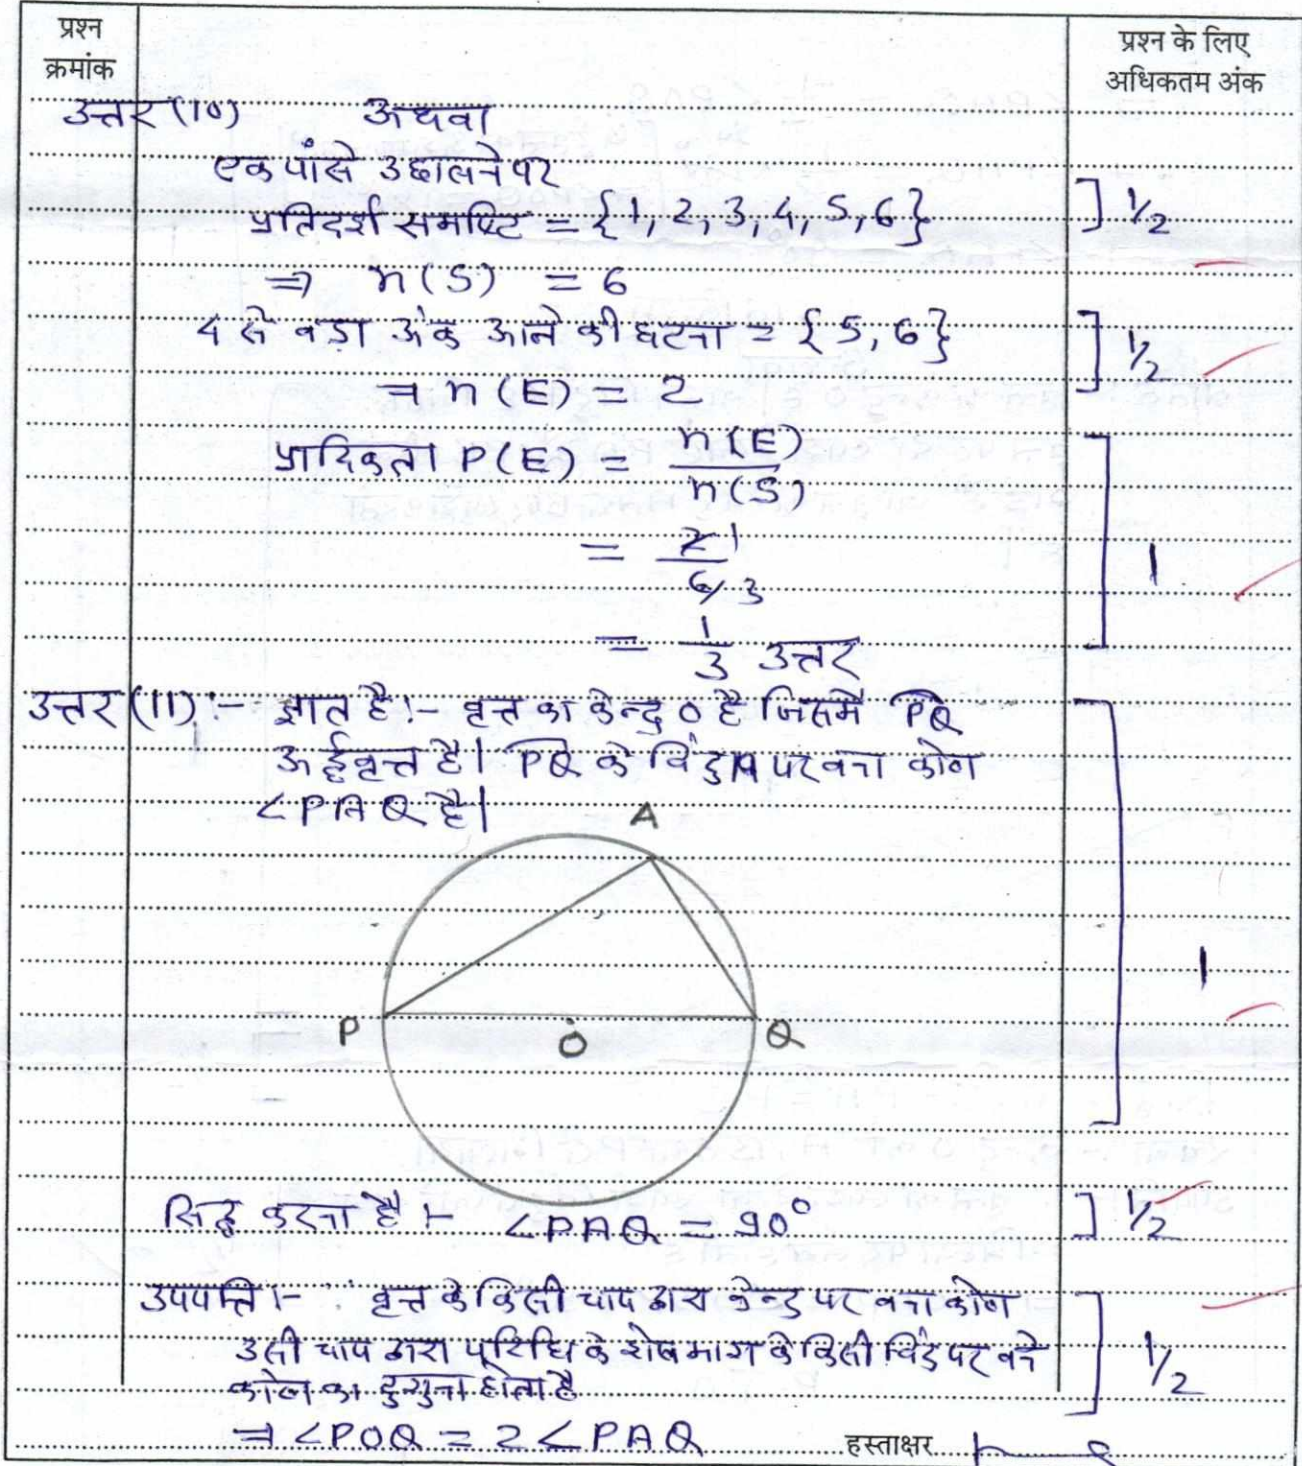 प्रश्न क्रमांक
प्रश्न के लिए अधिकतम अंक
उत्तर (10) अथवा
एक पांसे उछालने पर
प्रतिदर्श समष्टि = {1, 2, 3, 4, 5, 6} ] 1/2
⇒ n(S) = 6
4 से बड़ा अंक आने की घटना = {5, 6} ] 1/2
⇒ n(E) = 2
प्रायिकता P(E) = n(E)/n(S)
= 2 1/6 3 ] 1
= 1/3 उत्तर
उत्तर (11) :- ज्ञात है :- वृत्त का केन्द्र O है जिसमें PQ
अर्द्धवृत्त है। PQ के बिंदु A पर बना कोण
∠PAQ है।
A
] 1
P O Q
सिद्ध करना है :- ∠PAQ = 90° ] 1/2
उपपत्ति :- ∵ वृत्त के किसी चाप द्वारा केन्द्र पर बना कोण
उसी चाप द्वारा परिधि के शेष भाग के किसी बिंदु पर बने ] 1/2
कोण का दुगुना होता है
⇒ ∠POQ = 2∠PAQ हस्ताक्षर